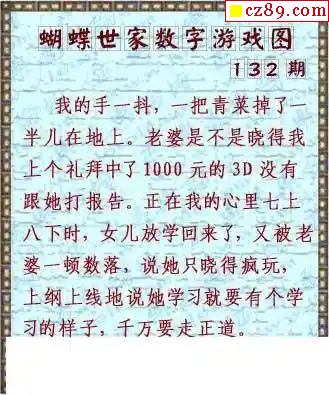 cz89.com
蝴蝶世家数字游戏图
132期
我的手一抖，一把青菜掉了一
半儿在地上。老婆是不是晓得我
上个礼拜中了1000元的3D没有
跟她打报告。正在我的心里七上
八下时，女儿放学回来了，又被老
婆一顿数落，说她只晓得疯玩，
上纲上线地说她学习就要有个学
习的样子，千万要走正道。